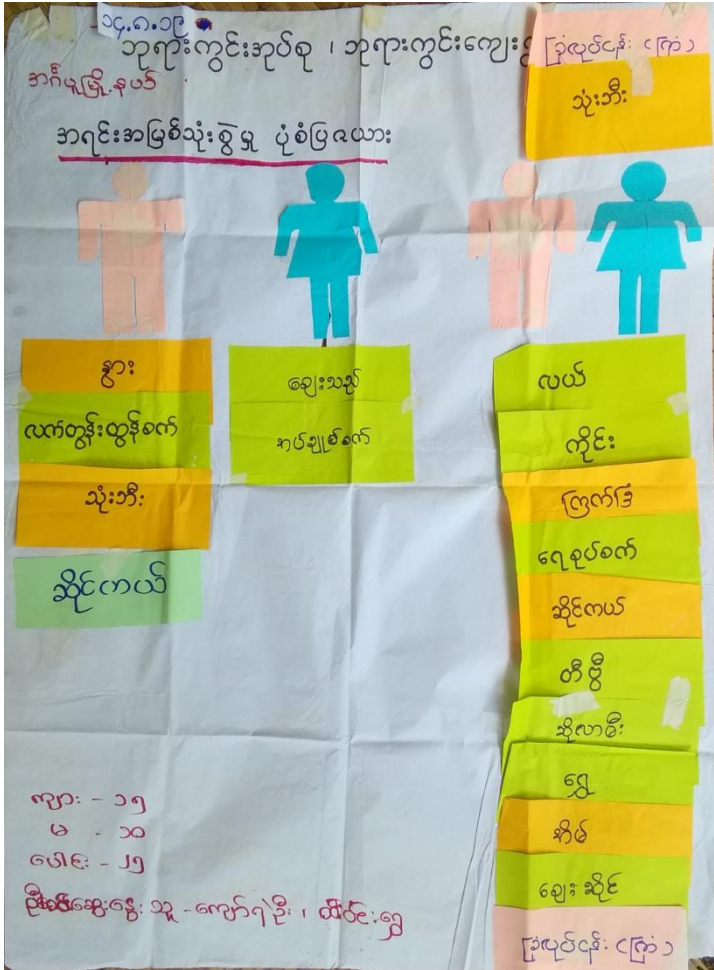 ၁၄.၈.၁၉
ဘုရားကွင်းအုပ်စု ၊ ဘုရားကွင်းကျေး
ခြံလုပ်ငန်း (ကြံ)
သုံးဘီး
အင်္ဂပူမြို့နယ်
အရင်းအမြစ်သုံးစွဲမှု ပုံစံပြဇယား
နွား
လက်တွန်းထွန်စက်
သုံးဘီး
ဆိုင်ကယ်
ဈေးသည်
အပ်ချုပ်စက်
လယ်
ကိုင်း
ကြက်ခြံ
ရေစုပ်စက်
ဆိုင်ကယ်
တီဗွီ
ဆိုလာမီး
ရွှေ
အိမ်
ဈေးဆိုင်
ခြံလုပ်ငန်း (ကြံ)
ကျား - ၁၅
မ - ၁၀
ပေါင်း - ၂၅
ဆွေးနွေးသူ - ကျော်ရဲဦး ၊ ထိဝင်းရွှေ